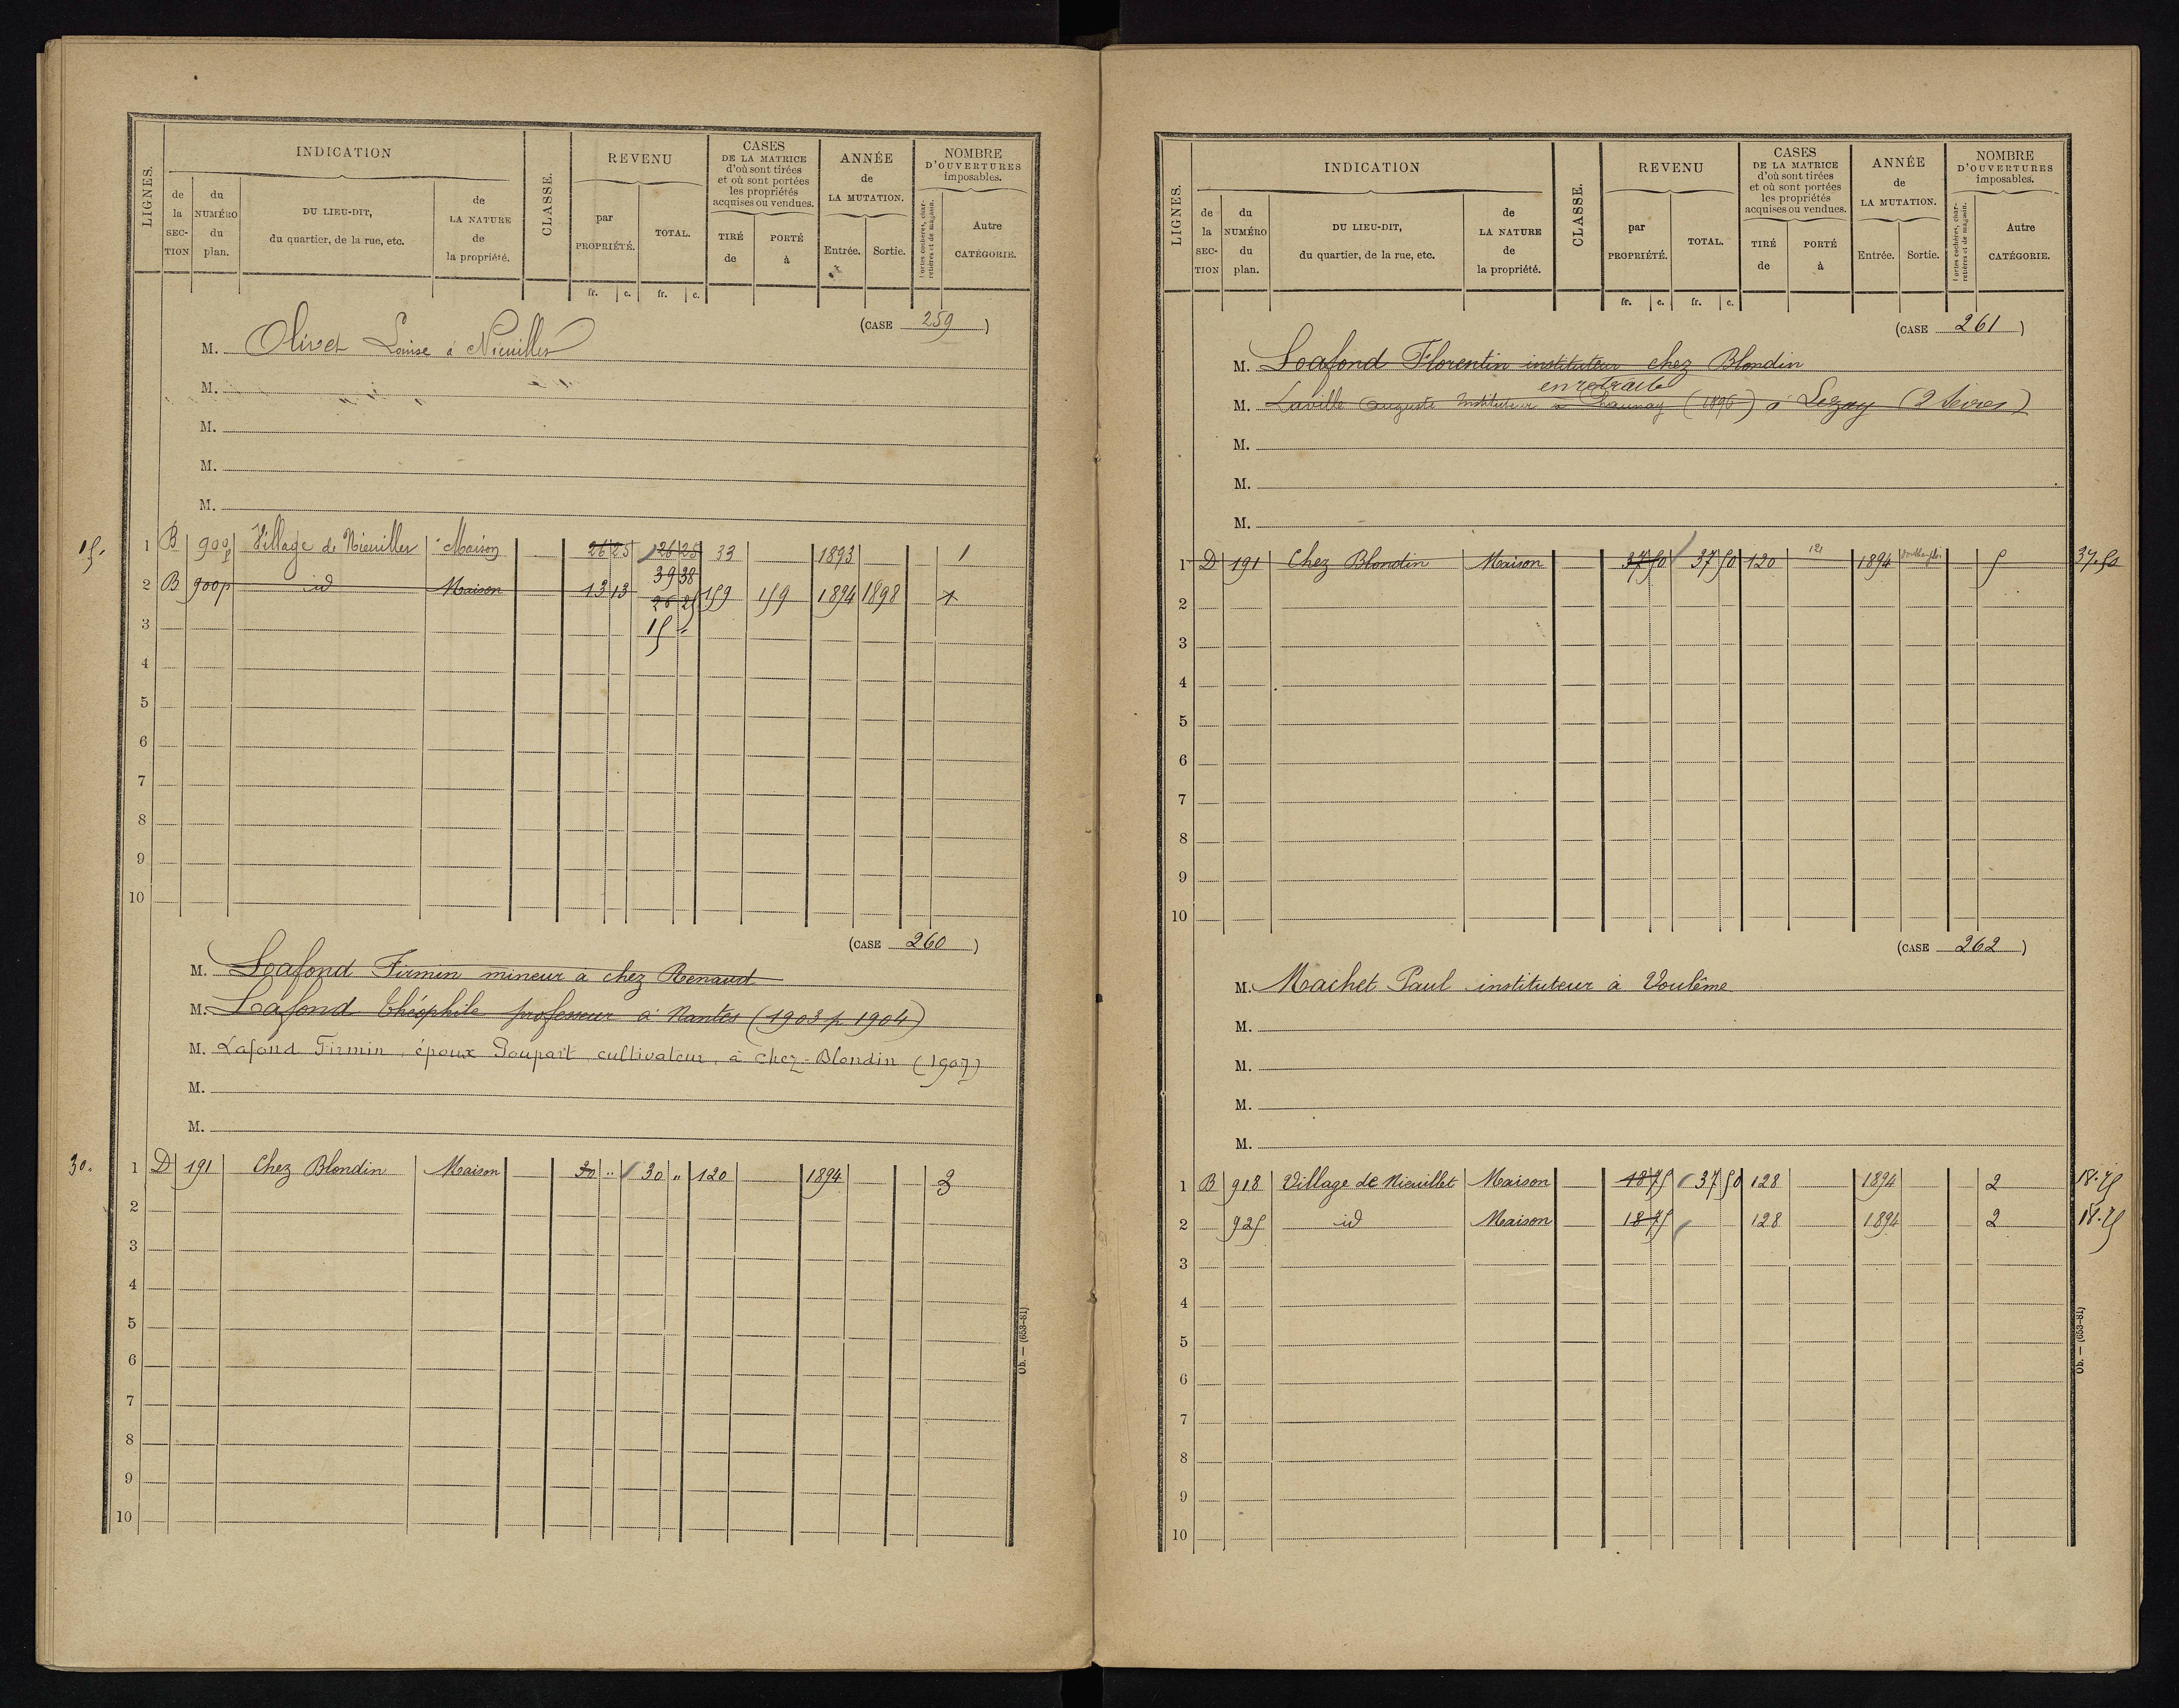 LIGNES. INDICATION CLASSE. REVENU CASES DE LA MATRICE d'où sont tirées et où sont portées les propriétés acquises ou vendues. ANNÉE de LA MUTATION. NOMBRE D'OUVERTURES imposables.
de la SECTION du NUMÉRO du plan. DU LIEU-DIT, du quartier, de la rue, etc. de LA NATURE de la propriété. par PROPRIÉTÉ. TOTAL. TIRÉ de PORTÉ à Entrée. Sortie. Portes cochères, charretières et de magasin. Autre CATÉGORIE.
fr. c. fr. c.
(CASE 259)
M. Olivet Louise à Nieuillet
M.
M.
M.
M.
15. 1 B 900p Village de Nieuillet Maison 26 25 26 25 33 1893 1
39 38
2 B 900p id Maison 13 13 26 25 159 159 1894 1898 1
3 15 "
4
5
6
7
8
9
10
(CASE 260)
M. Lafond Firmin mineur à chez Renaud
M. Lafond Théophile professeur à Nantes (1903 p. 1904)
M. Lafond Firmin, époux Poupart, cultivateur, à chez-Blondin (1907)
M.
M.
30. 1 D 191 Chez Blondin Maison 30 " 30 " 120 1894 3
2
3
4
5
6
7
8
9
10
Ob. — (653-81)
LIGNES. INDICATION CLASSE. REVENU CASES DE LA MATRICE d'où sont tirées et où sont portées les propriétés acquises ou vendues. ANNÉE de LA MUTATION. NOMBRE D'OUVERTURES imposables.
de la SECTION du NUMÉRO du plan. DU LIEU-DIT, du quartier, de la rue, etc. de LA NATURE de la propriété. par PROPRIÉTÉ. TOTAL. TIRÉ de PORTÉ à Entrée. Sortie. Portes cochères, charretières et de magasin. Autre CATÉGORIE.
fr. c. fr. c.
(CASE 261)
M. Lafond Florentin instituteur chez Blondin
en retraite
M. Laville Auguste Instituteur à Chaunay (1896) à Lezay (2 Sèvres)
M.
M.
M.
1 D 191 Chez Blondin Maison 37 50 37 50 120 121 1894 5 37.50
2
3
4
5
6
7
8
9
10
(CASE 262)
M. Machet Paul instituteur à Voulême
M.
M.
M.
M.
1 B 918 Village de Nieuillet Maison 18 75 37 50 128 1894 2 18.75
2 925 id Maison 18 75 128 1894 2 18.75
3
4
5
6
7
8
9
10
Ob. — (653-81)